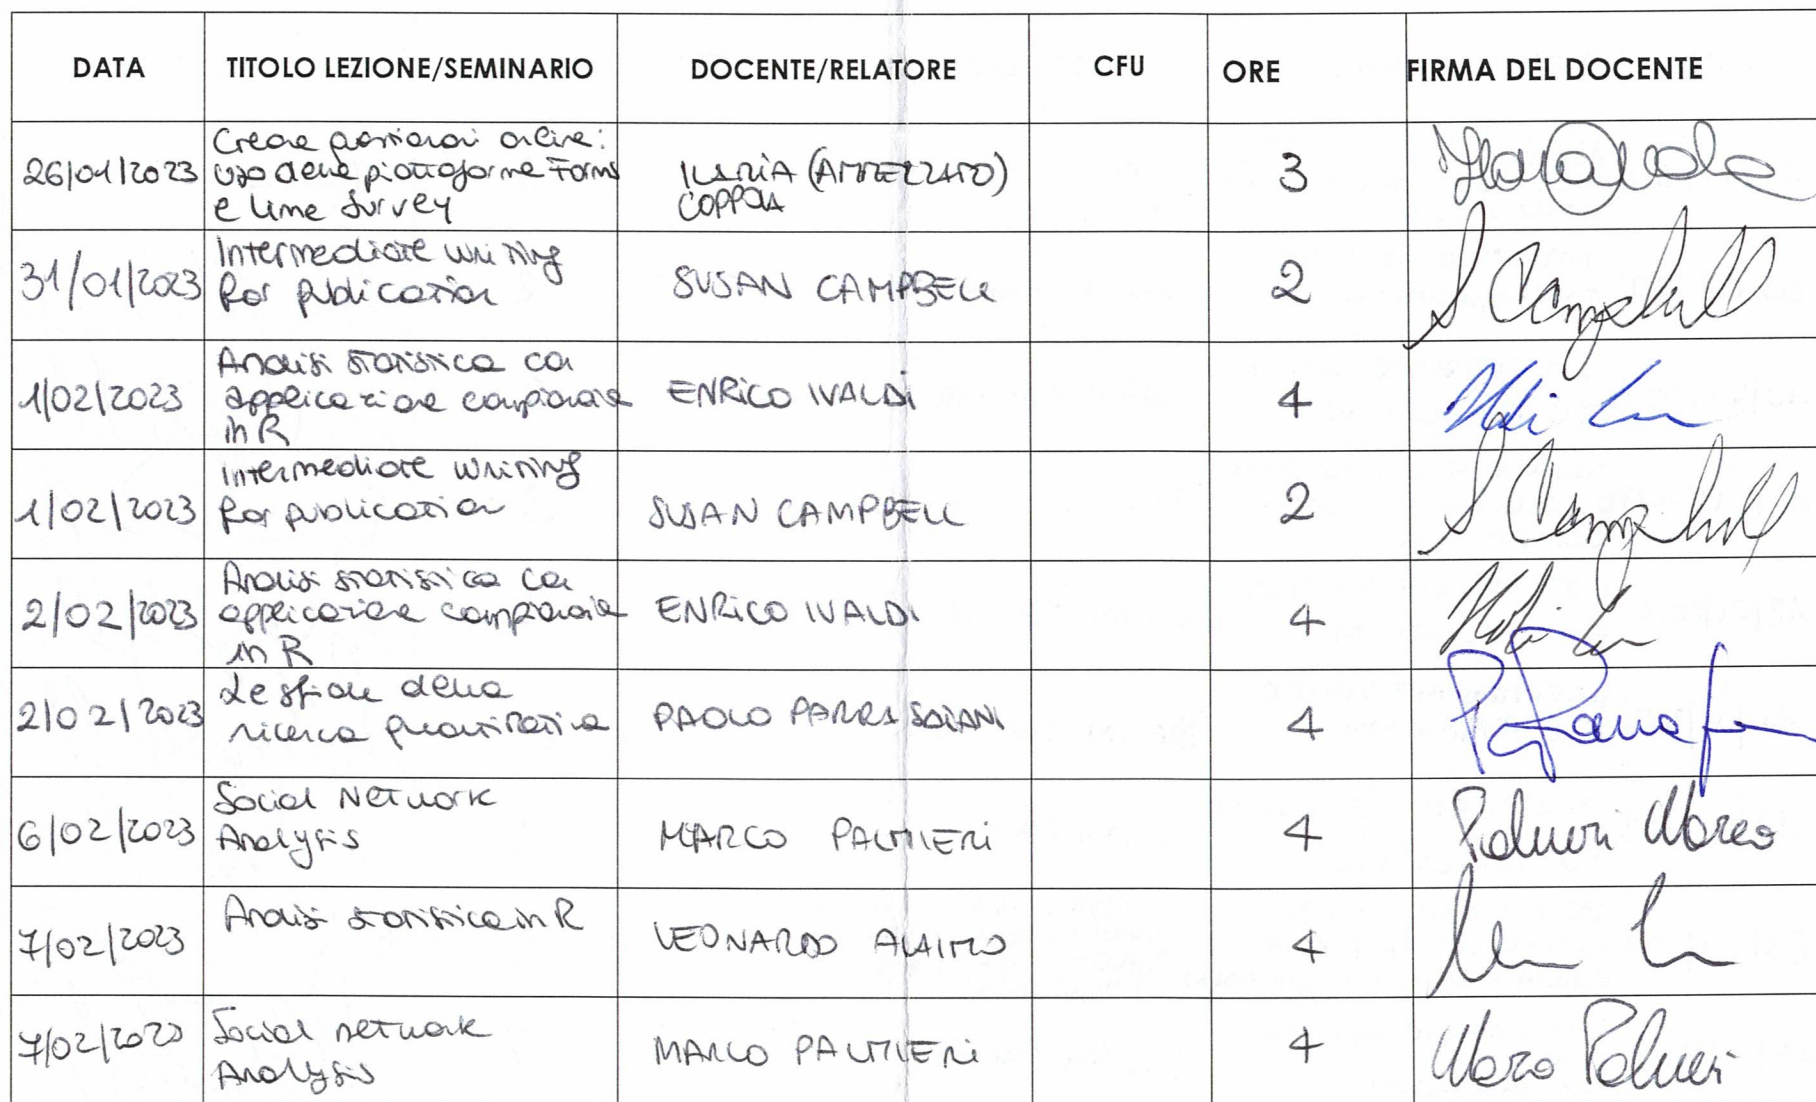 DATA TITOLO LEZIONE/SEMINARIO DOCENTE/RELATORE CFU ORE FIRMA DEL DOCENTE
26/01/2023 Creare questionari online: uso delle piattaforme Forms e Lime Survey ILARIA (ATTREZZATO) COPPOLA 3
31/01/2023 Intermediate writing for publication SUSAN CAMPBELL 2 S Campbell
1/02/2023 Analisi statistica con applicazione campionaria in R ENRICO IVALDI 4
1/02/2023 Intermediate writing for publication SUSAN CAMPBELL 2 S Campbell
2/02/2023 Analisi statistica con applicazione campionaria in R ENRICO IVALDI 4
2/02/2023 Le sfide della ricerca quantitativa PAOLO PARRA SAIANI 4
6/02/2023 Social Network Analysis MARCO PALMIERI 4 Palmieri Marco
7/02/2023 Analisi statistica in R LEONARDO ALAIMO 4
7/02/2023 Social network Analysis MARCO PALMIERI 4 Marco Palmieri